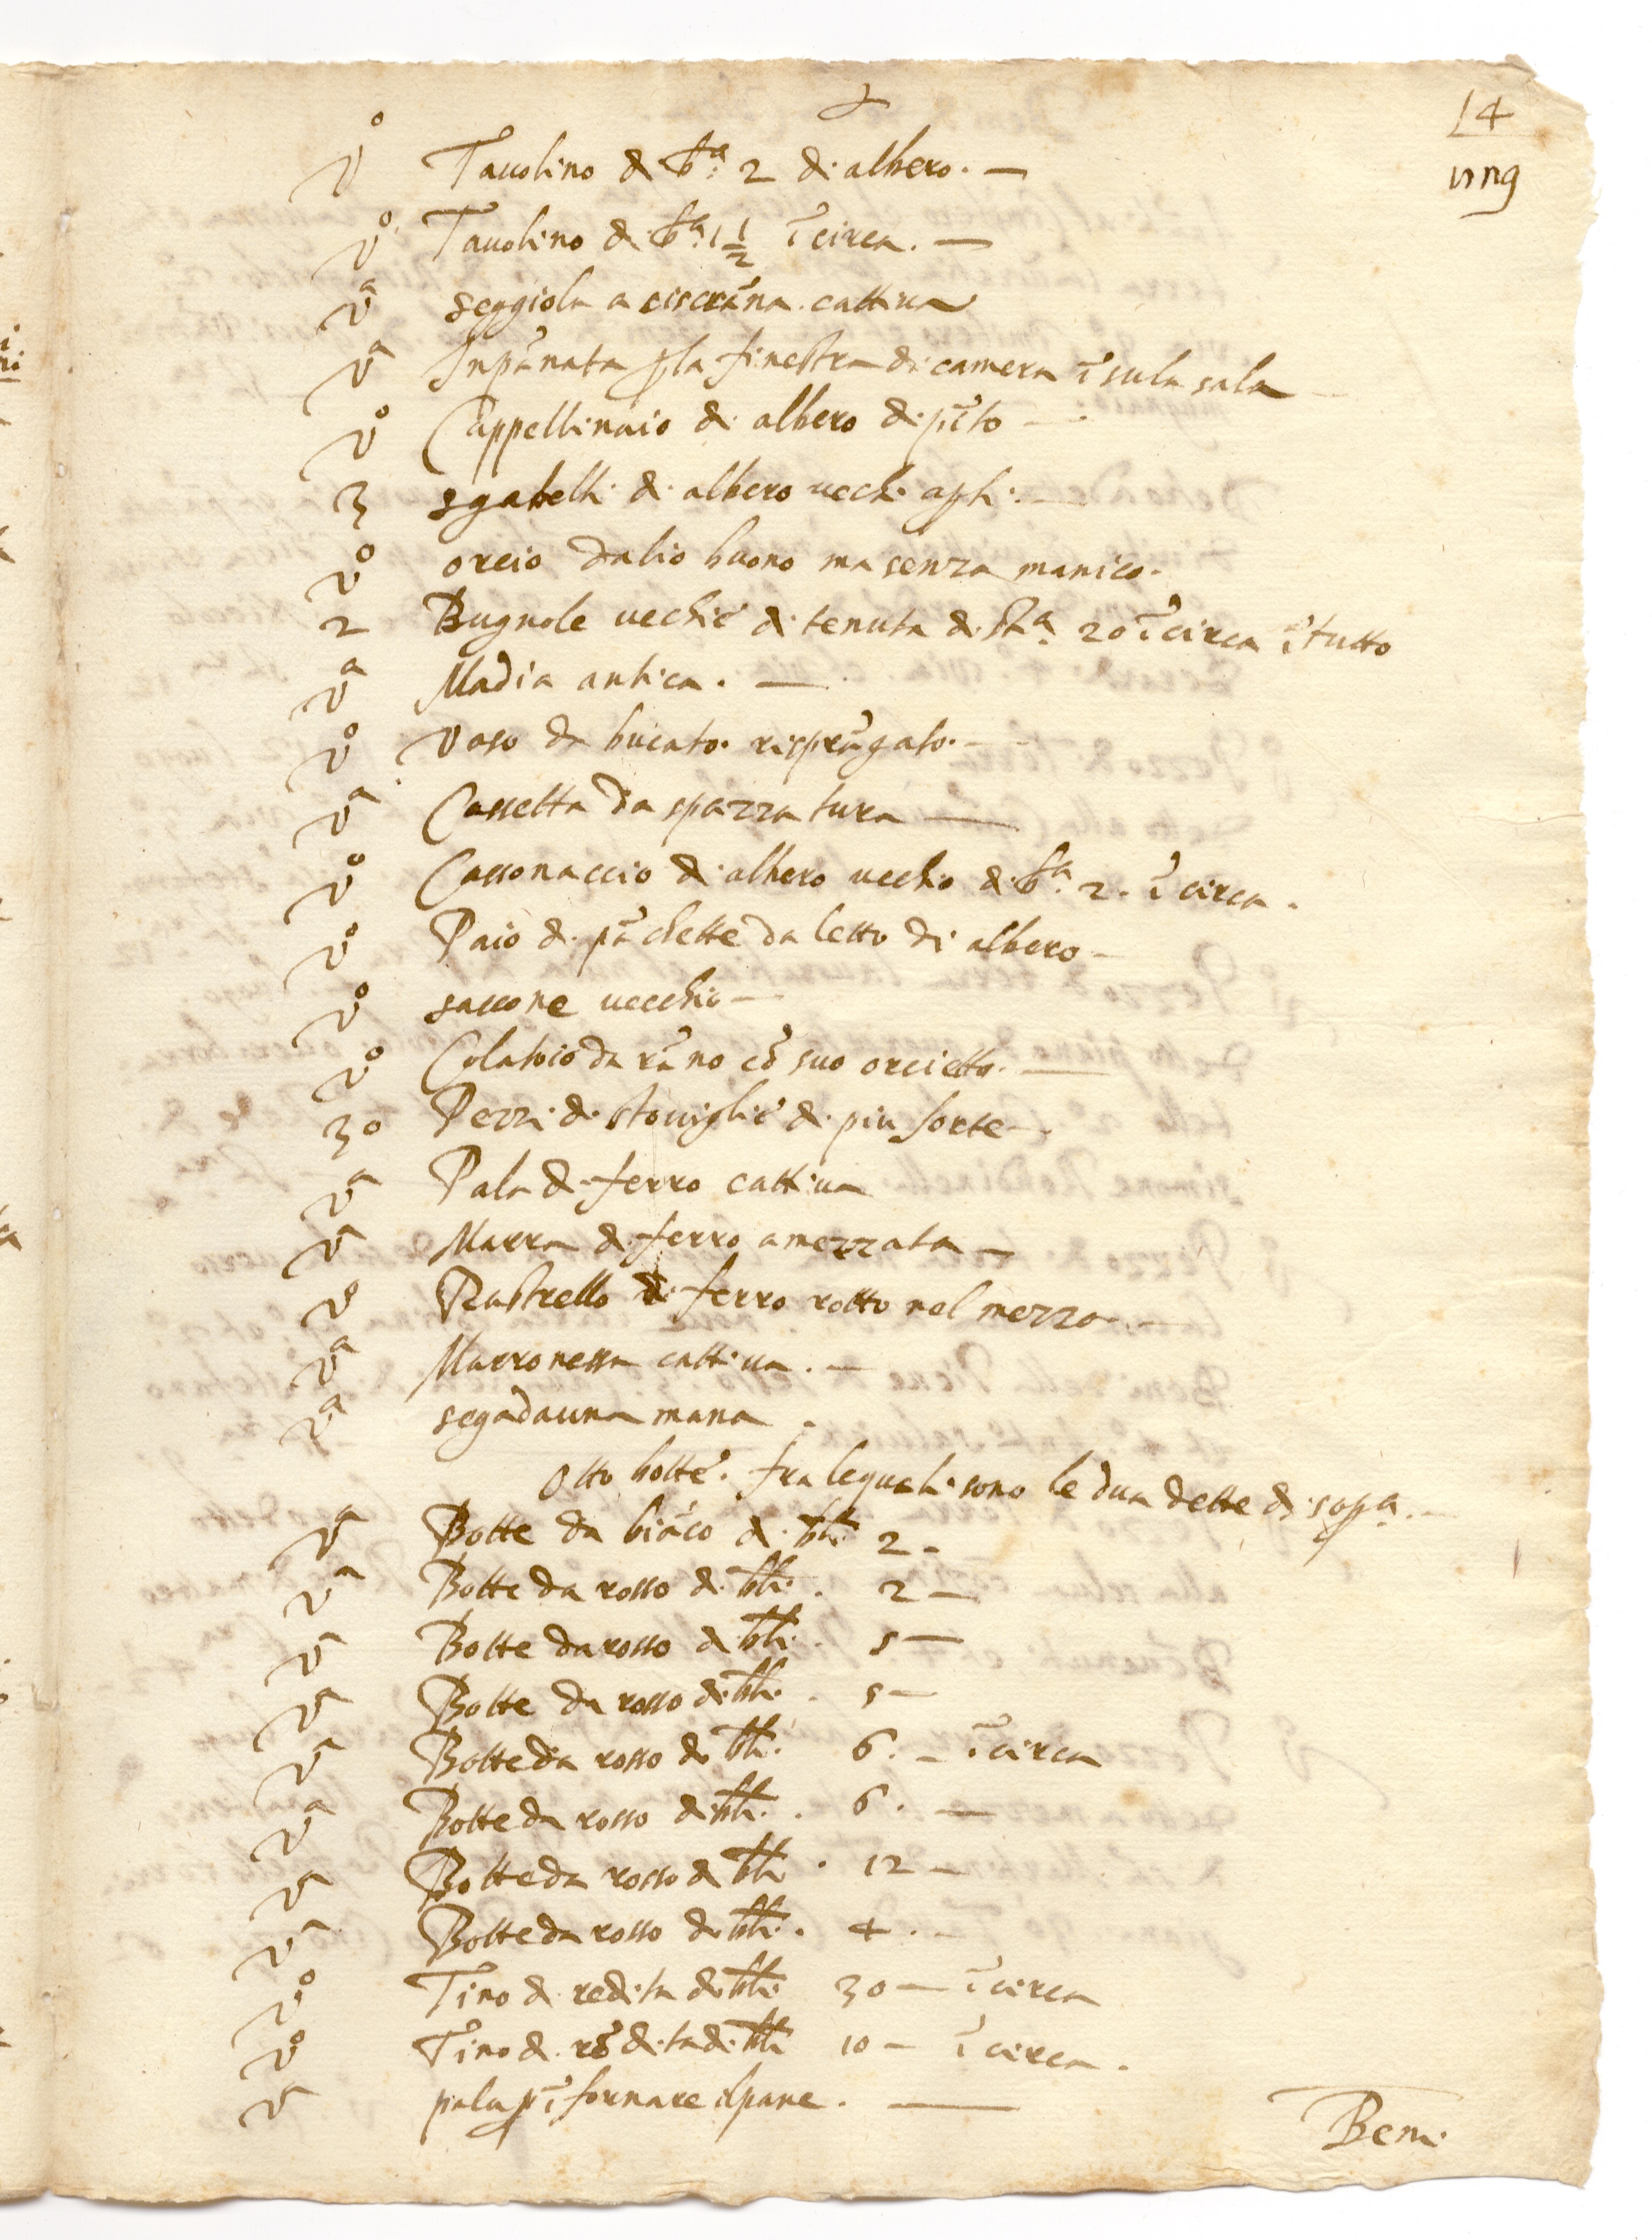 14
Vº Tauolino di bª: 2 di albero. —
Vº Tauolino di bª: 1 1/2 ī circa. —
Vª seggiola a ciscrāna cattiua
Vª Inpānata p la finestra di camera ī sula sala
Vº Cappellinaio di albero dipīto —
3 sgabelli di albero uechi —
Vº orcio dalio buono ma senza manico.
2 Bugnole uechie di tenuta di stª 20 ī circa ī tutto
Vª Madia antica. —
Vº Vaso da bucato. risprāgato. —
Vª Cassetta da spazzatura —
Vº Cassonaccio di albero uechio di bª: 2. ī circa.
Vº Paio di pāchette da letto di albero —
Vº saccone uecchio —
Vº Colatoio da rāno cō suo orcietto. —
30 Pezzi di stouiglie di piu sorte —
Vª Pala di ferro cattiua
Vª Marra di ferro amezzata —
Vº Rastrello di ferro rotto nel mezzo —
Vª Marronessa cattiua. —
Vª sega da una mana.
Otto botte. fra lequali sono le dua dette di sopª. —
Vª Botte da biāco di bli. 2 —
Vª Botte da rosso di bli. 2 —
Vª Botte da rosso di bli. 5 —
Vª Botte da rosso di bli. 5 —
Vª Botte da rosso di bli. 6. — ī circa
Vª Botte da rosso di bli. 6. —
Vª Botte da rosso di bli. 12 —
Vª Botte da rosso di bli. 4. —
Vº Tino di redita di bli. 30 — ī circa
Vº Tino di rēdita di bli 10 — ī circa.
Vª pala p ī fornare il pane. —
Beni